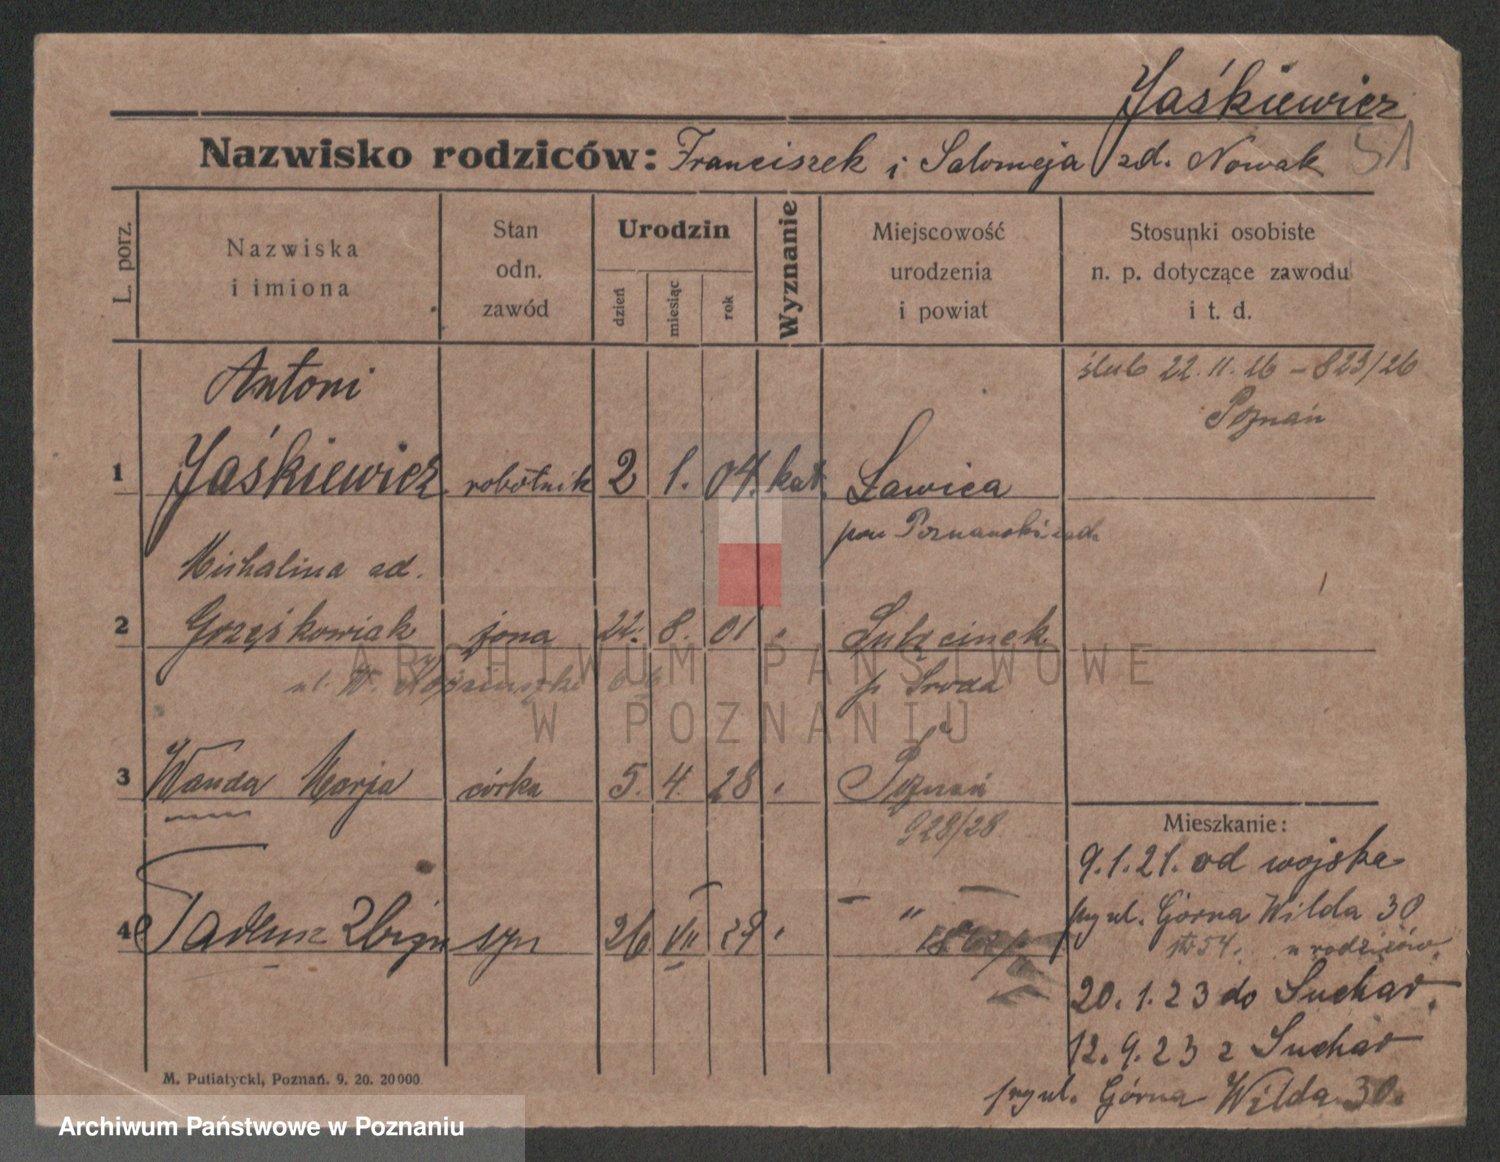 Jaśkiewicz
Nazwisko rodziców: Franciszek i Salomeja zd. Nowak 51
L. porz.
Nazwiska
i imiona
Stan
odn.
zawód
Urodzin
dzień
miesiąc
rok
Wyznanie
Miejscowość
urodzenia
i powiat
Stosunki osobiste
n. p. dotyczące zawodu
i t. d.
ślub 22.11.26 – 823/26
Poznań
Antoni
1 Jaśkiewicz robotnik 2 1. 04. kat. Ławica
pow Poznański zach.
Michalina zd.
2 Grześkowiak żona 22. 8. 01 "
p Środa
ul. W.
3 Wanda Marja córka 5. 4. 28 " Poznań
928/28
4 Tadeusz Zbign syn 26 VII 29 " – " –
Mieszkanie:
9.1.21. od wojska
przy ul. Górna Wilda 30
u rodziców.
20.1.23 do Suchar.
12.9.23 z Suchar
przy ul. Górna Wilda 30.
M. Putiatycki, Poznań. 9. 20. 20 000
ARCHIWUM PAŃSTWOWE
W POZNANIU
Archiwum Państwowe w Poznaniu